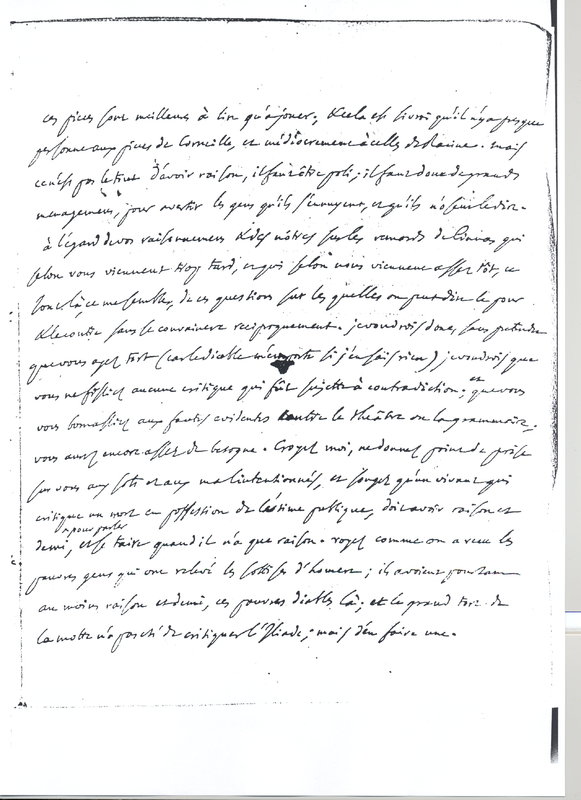 ces pieces sont meilleures à lire qu'à jouer; & cela est si vrai qu'il n'y a presque
personne aux pieces de Corneille, et médiocrement à celles de Racine. mais
ce n'est pas le tout d'avoir raison, il faut être poli; il faut donc de grands
menagemens, pour avertir les gens qu'ils s'ennuyent, et qu'ils n'osent le dire.
à l'égard de vos raisonnemens & des nôtres sur les remords de Cinna, qui
selon vous viennent trop tard, et qui selon nous viennent assez tôt, ce
sont là, ce me semble, de ces questions sur les quelles on peut dire le pour
& le contre sans se convaincre reciproquement. je voudrois donc, sans pretendre
que vous ayez tort (car le diable m'emporte si j'en sais rien) je voudrois que
vous ne fissiez aucune critique qui fût sujette à contradiction; et que vous
vous bornassiez aux fautes evidentes contre le theâtre ou la grammaire.
vous aurez encore assez de besogne. Croyez moi, ne donnez point de prise
sur vous aux sots et aux malintentionnés, et songez qu'un vivant qui
critique un mort en possession de l'estime publique, doit avoir raison et
demi, ^pour parler et se taire quand il n'a que raison. voyez comme on a reçu les
pauvres gens qui ont relevé les sottises d'homere; ils avoient pourtant
au moins raison et demi, ces pauvres diables là; et le grand tort de
la motte n'a pas été de critiquer l'Iliade; mais d'en faire une.